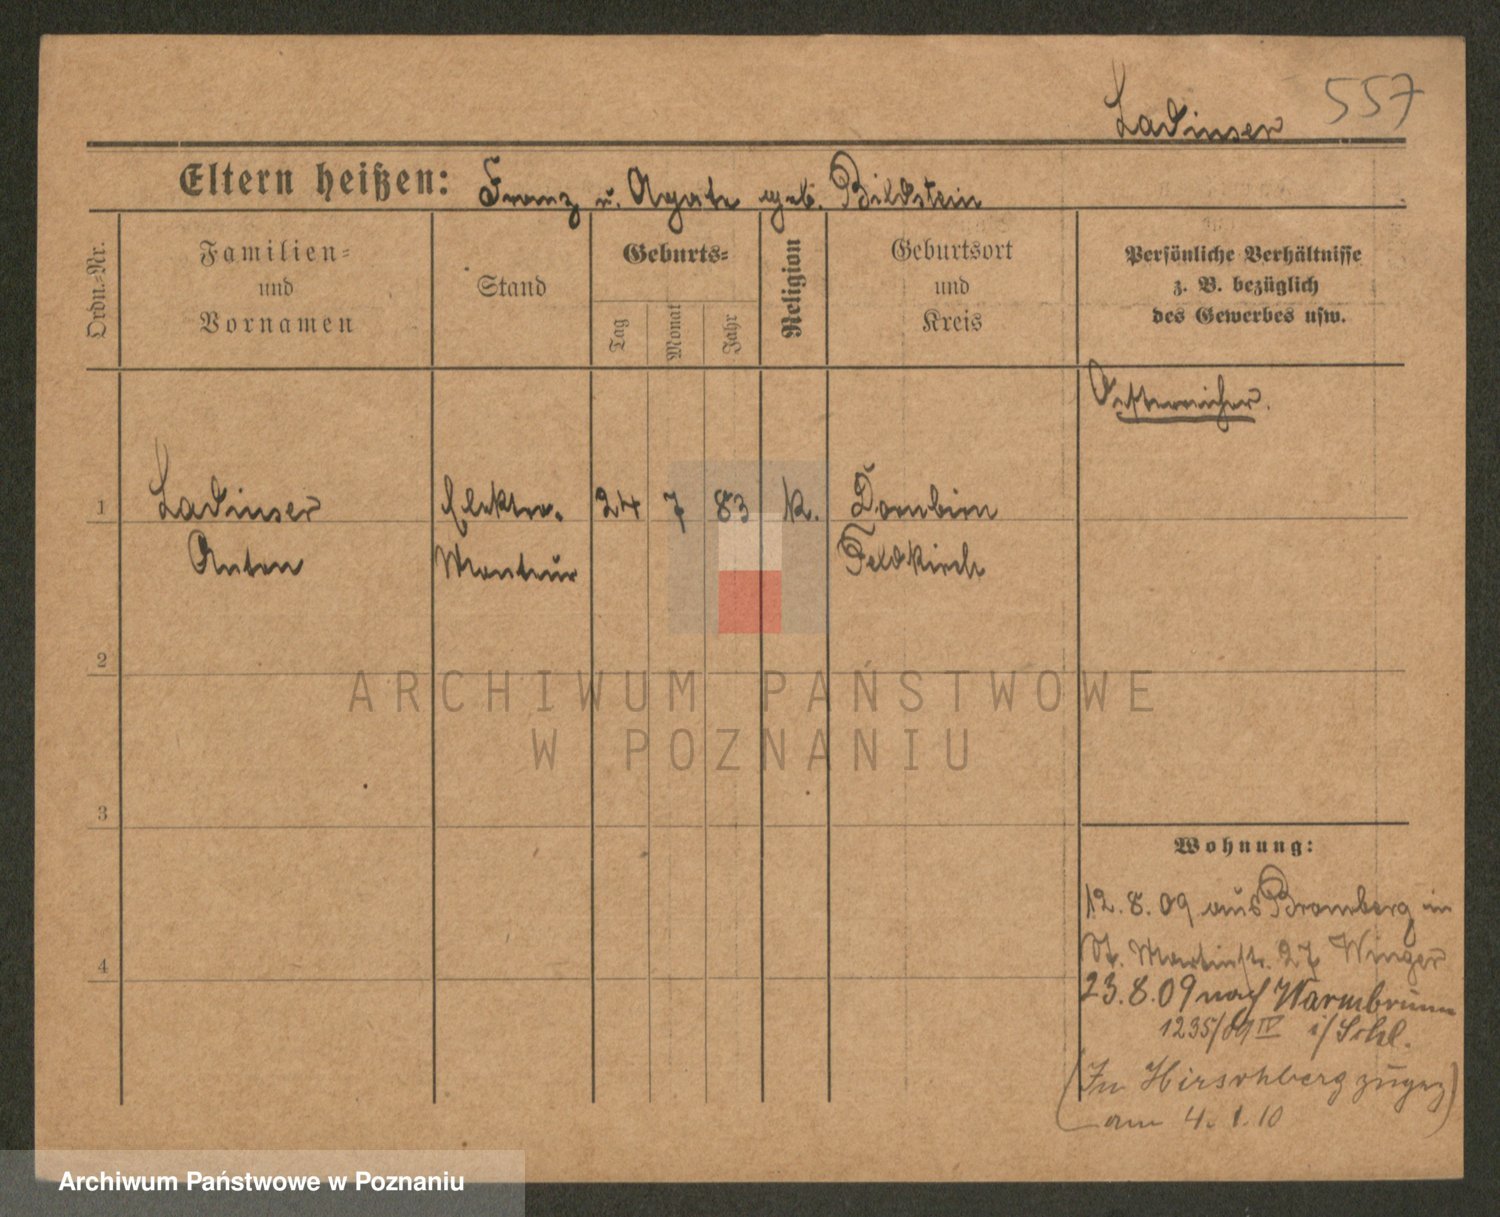 557
Ladinser
Eltern heißen: Franz u. Agate geb. Bildstein
Ordn.-Nr.
Familien-
und
Vornamen
Stand
Geburts-
Tag
Monat
Jahr
Religion
Geburtsort
und
Kreis
Persönliche Verhältnisse
z. B. bezüglich
des Gewerbes usw.
Oesterreicher.
1 Ladinser Elektro- 24 7 83 K. Dornbirn
Anton Monteur Feldkirch
2
3
4
ARCHIWUM PAŃSTWOWE
W POZNANIU
Wohnung:
12.8.09 aus Bromberg in
St. Martinstr. 27 Winger
23.8.09 nach Warmbrunn
1235/09 IV i/Schl.
(In Hirschberg zugez)
am 4.1.10
Archiwum Państwowe w Poznaniu